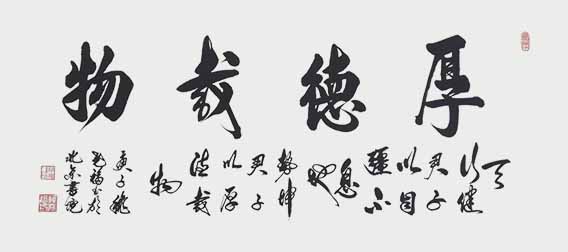 厚德载物
天
行健
君子
以自
疆不
息
地
势坤
君子
以厚
德载
物
庚子秋
北京